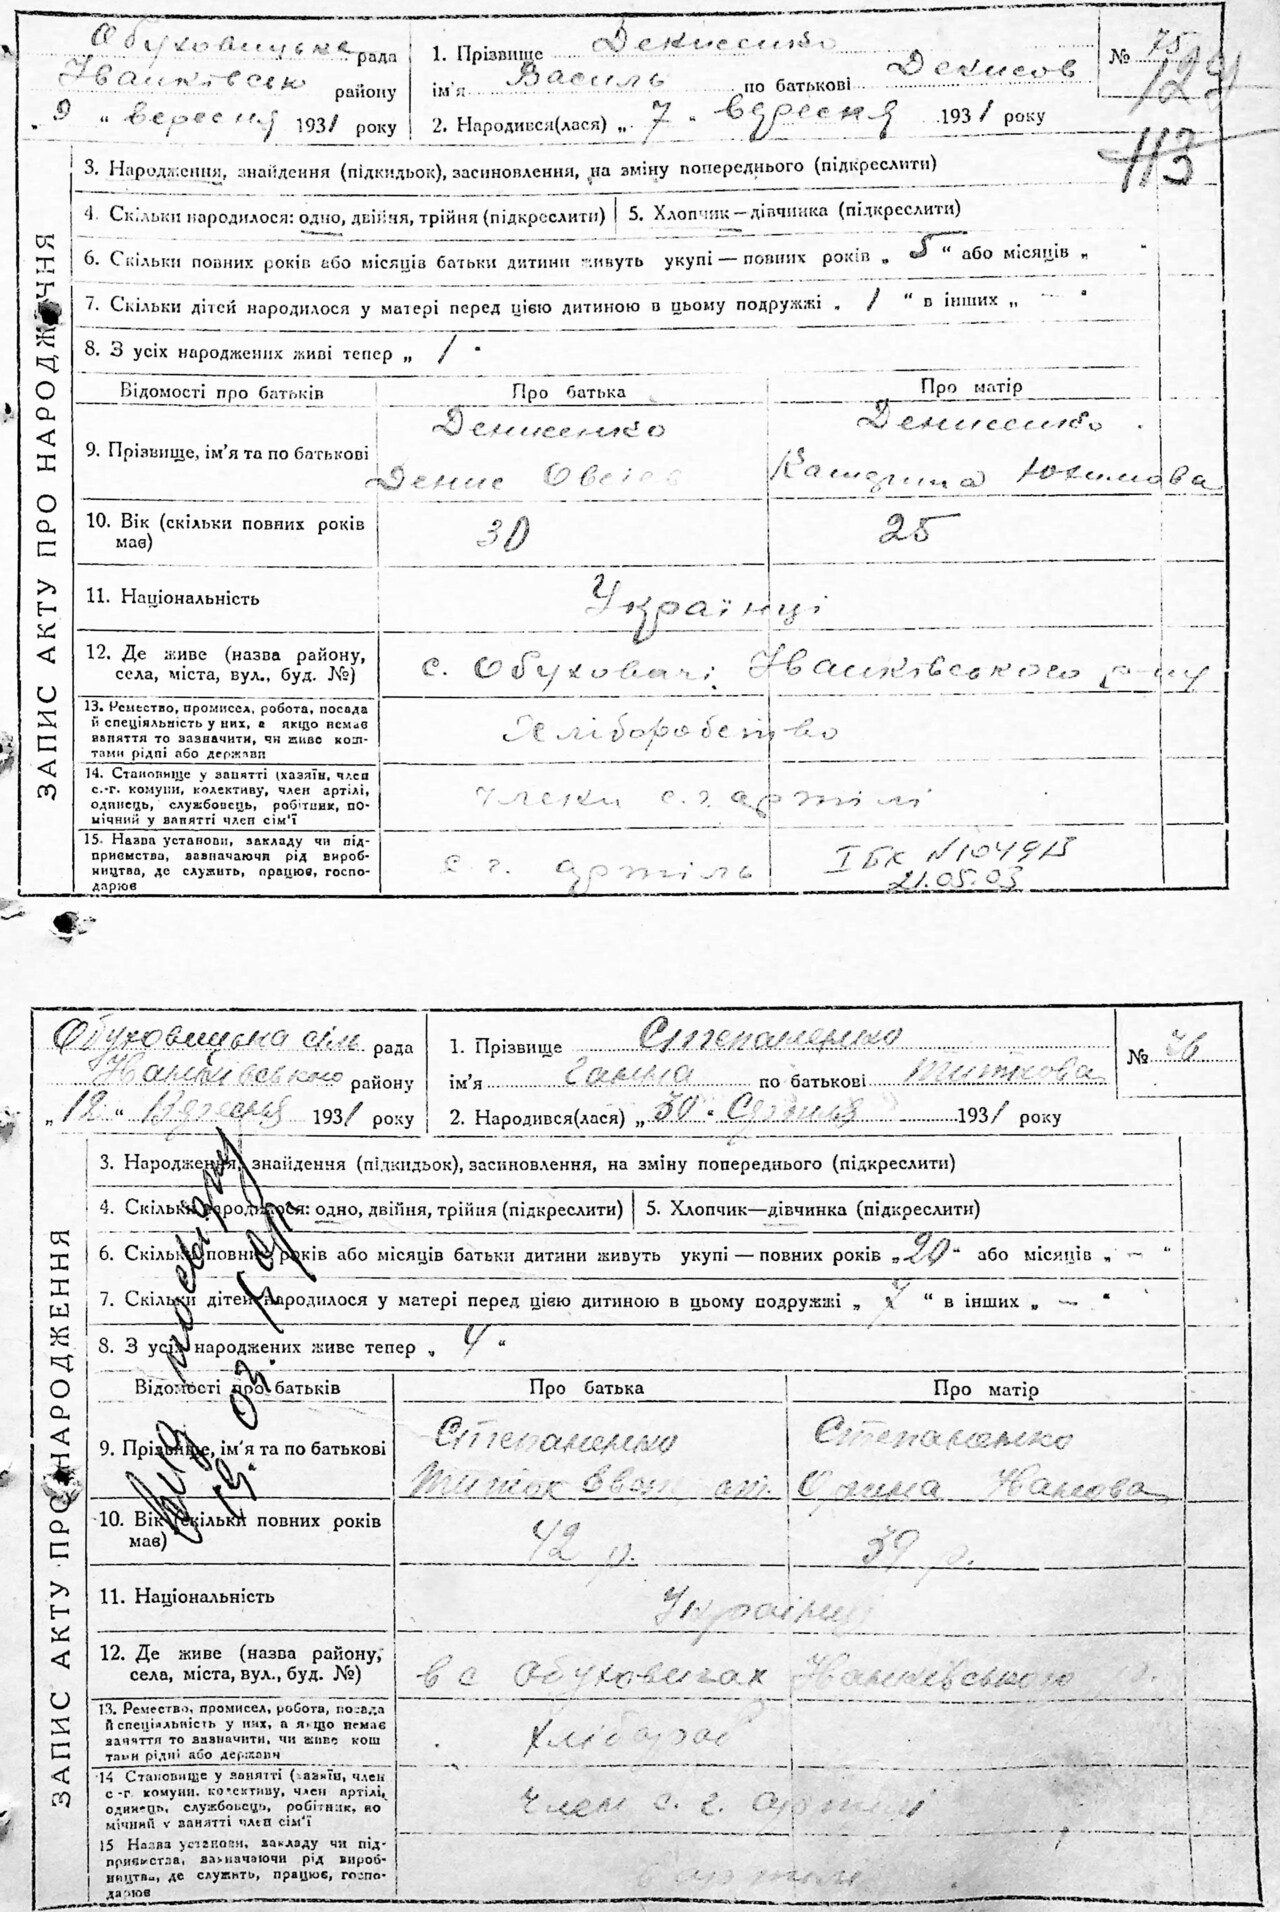 Обуховицька рада
Іванківськ району
„ 9 " вересня 1931 року
1. Прізвище Денисенко
ім'я Василь по батькові Денисов
2. Народився(лася) „ 7 " вересня 1931 року
№ 75
129
113
ЗАПИС АКТУ ПРО НАРОДЖЕННЯ
3. Народження, знайдення (підкидьок), засиновлення, на зміну попереднього (підкреслити)
4. Скільки народилося: одно, двійня, трійня (підкреслити) 5. Хлопчик—дівчинка (підкреслити)
6. Скільки повних років або місяців батьки дитини живуть укупі — повних років „ 5 " або місяців „ "
7. Скільки дітей народилося у матері перед цією дитиною в цьому подружжі „ 1 " в інших „ — "
8. З усіх народжених живі тепер „ 1 "
Відомості про батьків Про батька Про матір
9. Прізвище, ім'я та по батькові
Денисенко
Денис Овсіев
Денисенко
Катерина Юхимова
10. Вік (скільки повних років має) 30 25
11. Національність Українці
12. Де живе (назва району, села, міста, вул., буд. №) с. Обуховичі Іванківського р-ну
13. Ремество, промисел, робота, посада
й спеціяльність у них, а якщо немає
заняття то зазначити, чи живе кош-
тами рідні або держави
Хліборобство
14. Становище у занятті (хазяїн, член
с.-г. комуни, колективу, член артілі,
одинець, службовець, робітник, по-
мічний у занятті член сім'ї
члени с. г. артілі
15. Назва установи, закладу чи під-
приємства, зазначаючи рід вироб-
ництва, де служить, працює, госпо-
дарює
с. г. артіль
ІБК №104913
21.05.03
Обуховицька сіль рада
Іванківського району
„ 12 " Вересня 1931 року
1. Прізвище Степаненко
ім'я Ганна по батькові Титкова
2. Народився(лася) „ 30 " Серпня 1931 року
№ 76
ЗАПИС АКТУ ПРО НАРОДЖЕННЯ
3. Народження, знайдення (підкидьок), засиновлення, на зміну попереднього (підкреслити)
4. Скільки народилося: одно, двійня, трійня (підкреслити) 5. Хлопчик—дівчинка (підкреслити)
6. Скільки повних років або місяців батьки дитини живуть укупі — повних років „ 20 " або місяців „ — "
7. Скільки дітей народилося у матері перед цією дитиною в цьому подружжі „ 7 " в інших „ — "
8. З усіх народжених живе тепер „ 4 "
Відомості про батьків Про батька Про матір
9. Прізвище, ім'я та по батькові
Степаненко
Титок
Степаненко
Орина Іванова
10. Вік (скільки повних років має) 42 р. 39 р.
11. Національність Українці
12. Де живе (назва району, села, міста, вул., буд. №) в с Обуховичах Іванківського р.
13. Ремество, промисел, робота, посада
й спеціяльність у них, а якщо немає
заняття то зазначити, чи живе кош
тами рідні або держави
Хлібороб
14 Становище у занятті (хазяїн, член
с-г. комуни, колективу, член артілі,
одинець, службовець, робітник, по
мічний у занятті член сім'ї
член с. г. артілі
15 Назва установи, закладу чи під-
приємства, зазначаючи рід вироб-
ництва, де служить, працює, госпо-
дарює
в артілі